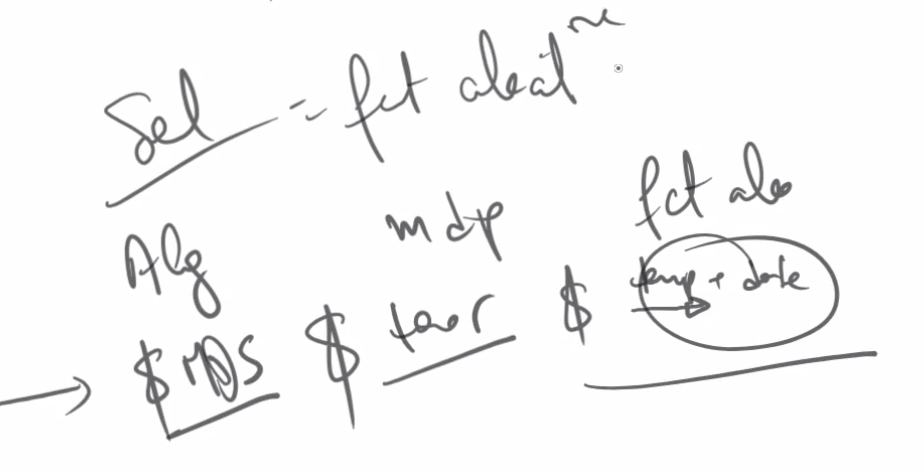 Sel = fct aleat^re
Alg mdp fct alea
$ MD5 $ toor $ temp + date